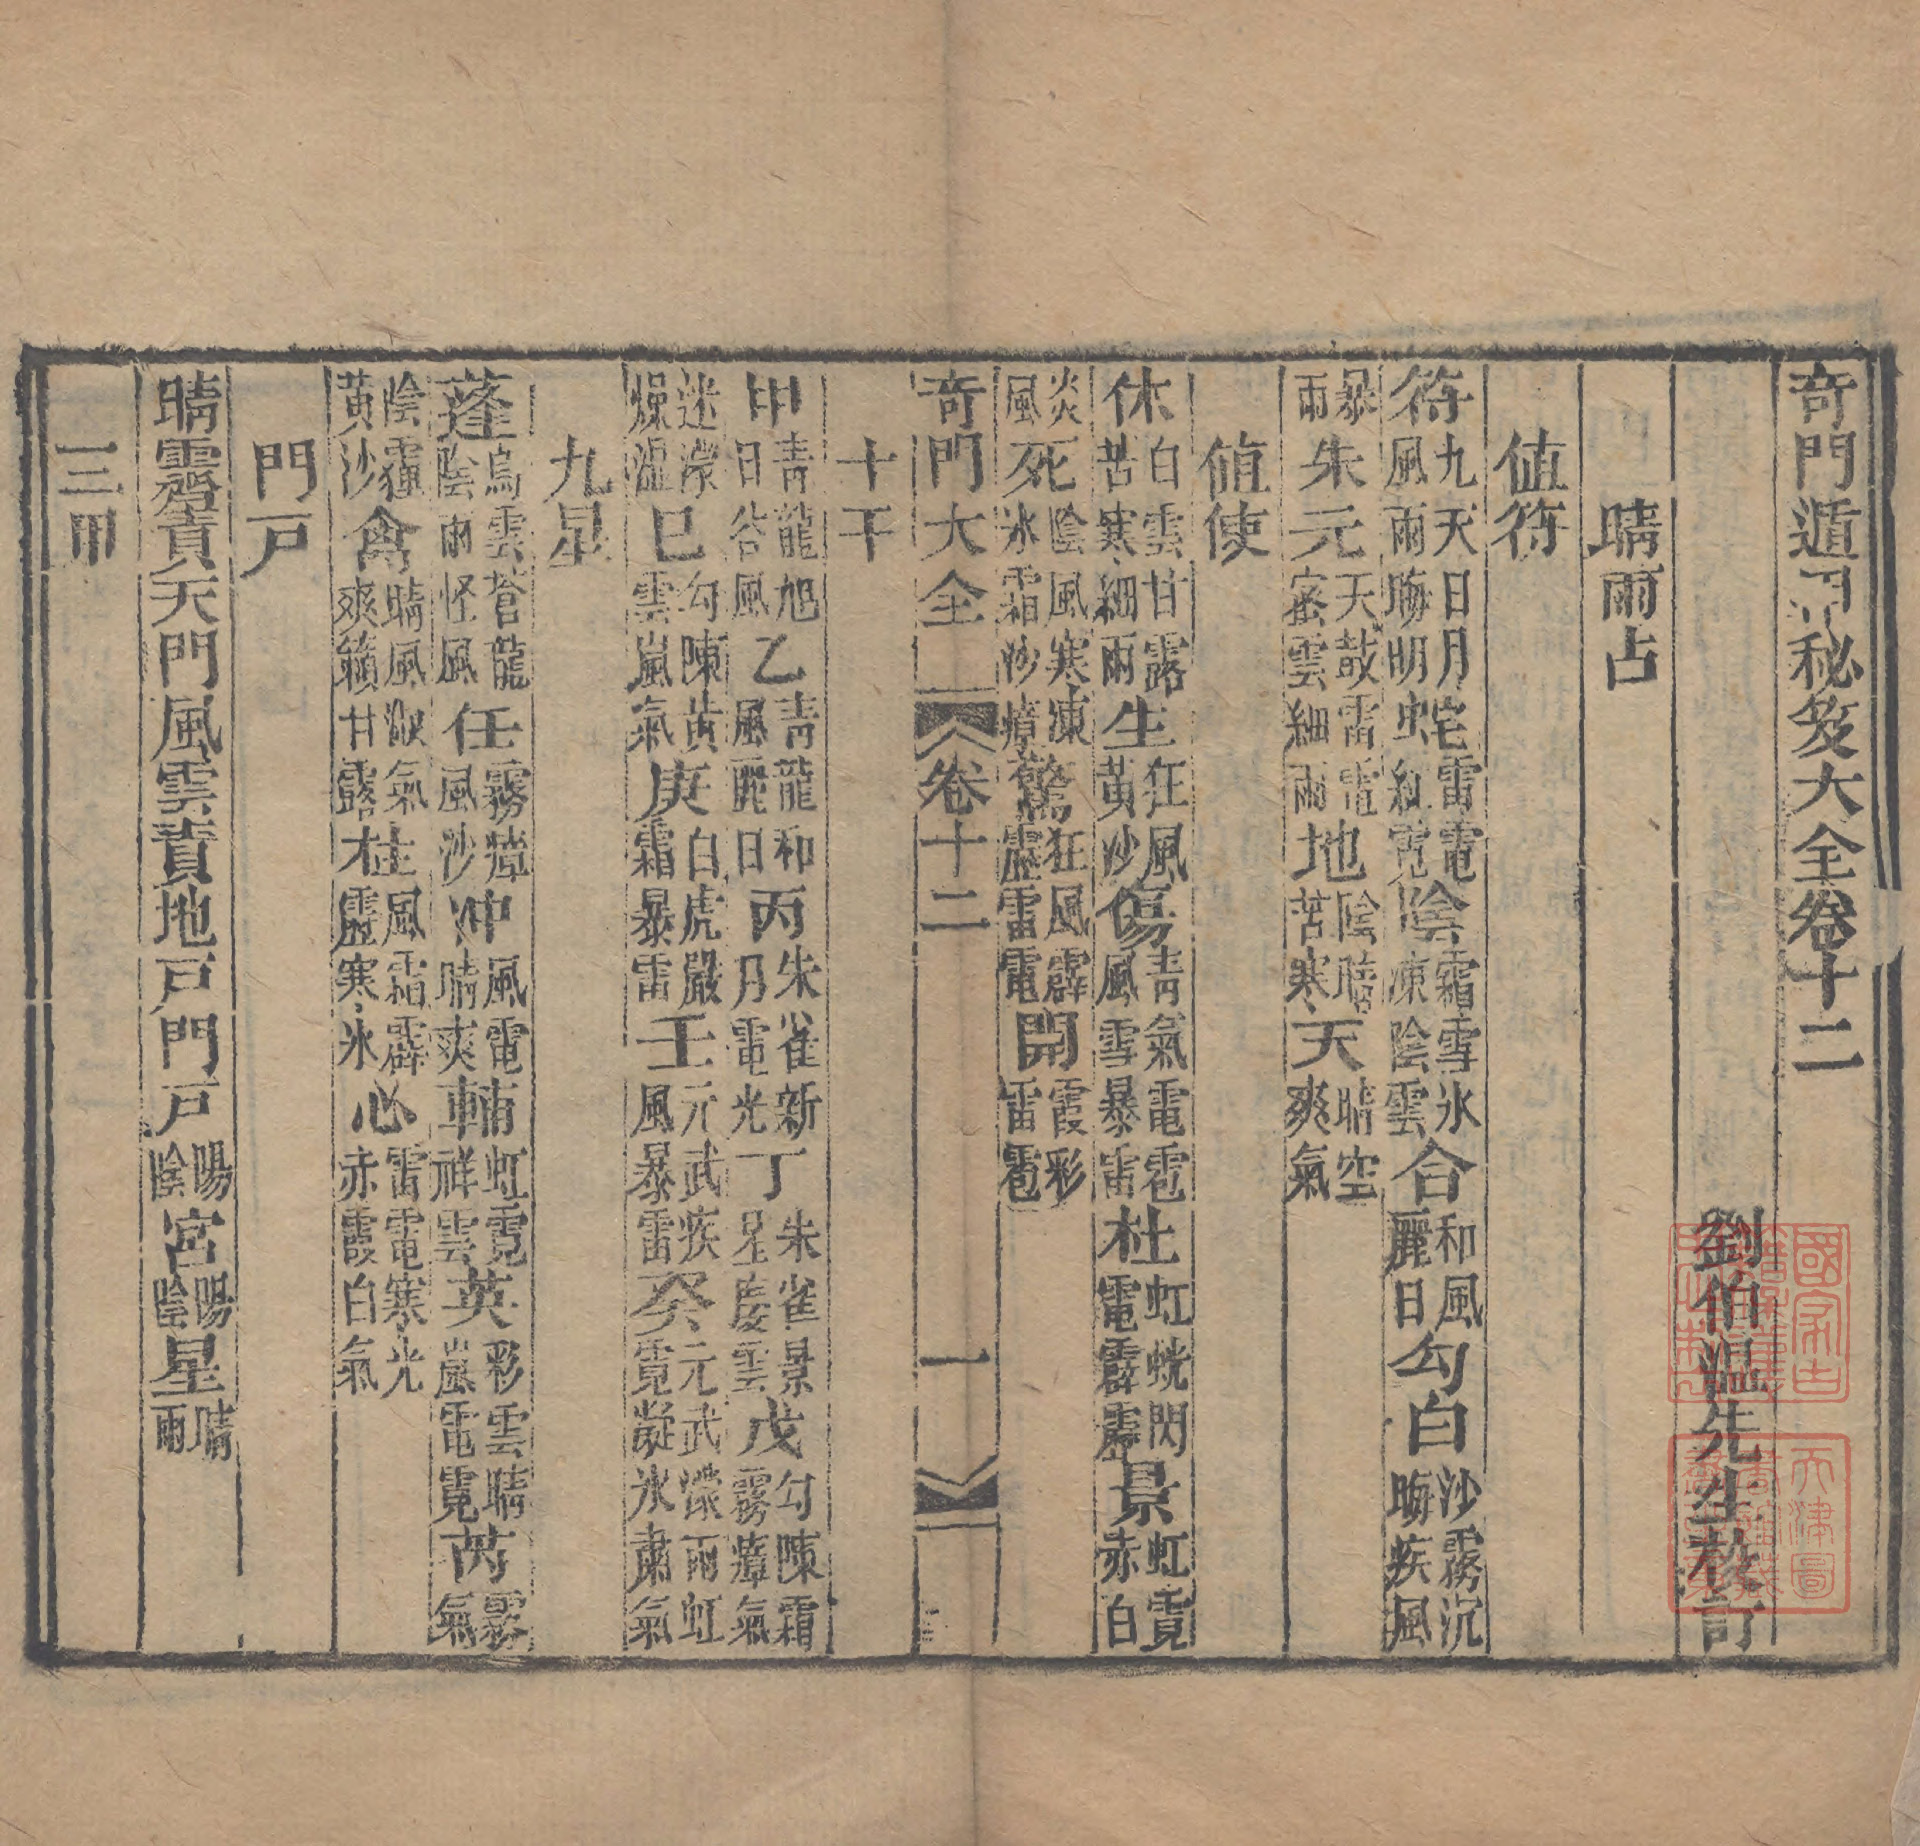 奇門遁甲秘笈大全卷十二
劉伯温先生教訂
晴雨占
值符
符九天日月風雨晦明蛇雷電紅霓陰霜雪氷凍陰雲合和風麗日勾白沙霧沉晦疾風
暴雨朱元天鼓雷電密雲細雨地陰暗苦寒天晴空爽氣
值使
休白雲甘露苦寒細雨生狂風黃沙傷青氣電雹風雪暴雷杜虹蛻閃電霹靂景虹霓赤白
炎風死陰風寒凍氷霜沙瘴驚狂風霹靂雷電開霞彩雷雹
奇門大全 卷十二 一
十干
甲青龍旭日谷風乙青龍和風麗日丙朱雀新月電光丁朱雀景星慶雲戊勾陳霜霧瘴氣
迷濛燥濕巳勾陳黃雲嵐氣庚白虎嚴霜暴雷壬元武疾風暴雷癸元武濃雨虹霓凝氷肅氣
九星
蓬烏雲蒼龍陰雨怪風任霧瘴風沙冲風電晴爽輔虹霓祥雲英彩雲晴嵐電霓芮霧氣
陰霾黃沙禽晴風淑氣爽籟甘露柱風霜霹靂寒氷心雷電寒光赤霞白氣
門戸
晴霽責天門風雲責地戸門戸陽陰宮陽陰星晴雨
三甲
天津圖書館藏